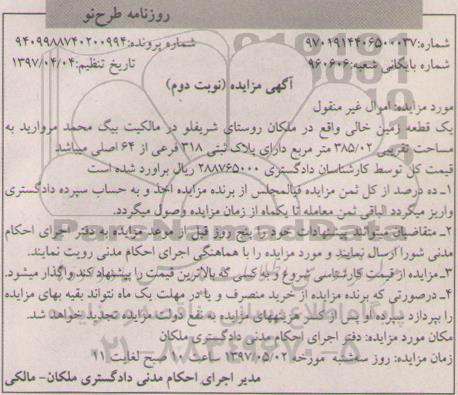 روزنامه طرح‌نو
شماره:۹۷۰۱۹۱۴۴۰۶۵۰۰۰۳۷ شماره پرونده:۹۴۰۹۹۸۸۷۴۰۲۰۰۹۹۴
شماره بایگانی شعبه:۹۶۰۶۰۶ تاریخ تنظیم:۱۳۹۷/۰۴/۰۴
آگهی مزایده (نوبت دوم)
مورد مزایده: اموال غیر منقول
یک قطعه زمین خالی واقع در ملکان روستای شریفلو در مالکیت بیگ محمد مروارید به
مساحت تقریبی ۳۸۵/۰۲ متر مربع دارای پلاک ثبتی ۳۱۸ فرعی از ۶۴ اصلی میباشد
قیمت کل توسط کارشناسان دادگستری ۲۸۸۷۶۵۰۰۰ ریال برآورد شده است
۱ـ ده درصد از کل ثمن مزایده فی‌المجلس از برنده مزایده اخذ و به حساب سپرده دادگستری
واریز میگردد الباقی ثمن معامله تا یکماه از زمان مزایده وصول میگردد.
۲ـ متقاضیان میتوانند پیشنهادات خود را پنج روز قبل از موعد مزایده به دفتر اجرای احکام
مدنی شورا ارسال نمایند و مورد مزایده را با هماهنگی اجرای احکام مدنی رویت نمایند.
۳ـ مزایده از قیمت کارشناسی شروع و به کسی که بالاترین قیمت را پیشنهاد کند واگذار میشود.
۴ـ درصورتی که برنده مزایده از خرید منصرف و یا در مهلت یک ماه نتواند بقیه بهای مزایده
را بپردازد سپرده او پس از کسر هزینه‌های مزایده به نفع دولت مزایده تجدید خواهد شد.
مکان مورد مزایده: دفتر اجرای احکام مدنی دادگستری ملکان
زمان مزایده: روز سه‌شنبه مورخه ۱۳۹۷/۰۵/۰۲ ساعت ۱۰ صبح لغایت ۱۱
مدیر اجرای احکام مدنی دادگستری ملکان- مالکی
ParsNamadData
۰۲۱-۸۸۳۴۹۶۷۰-۵